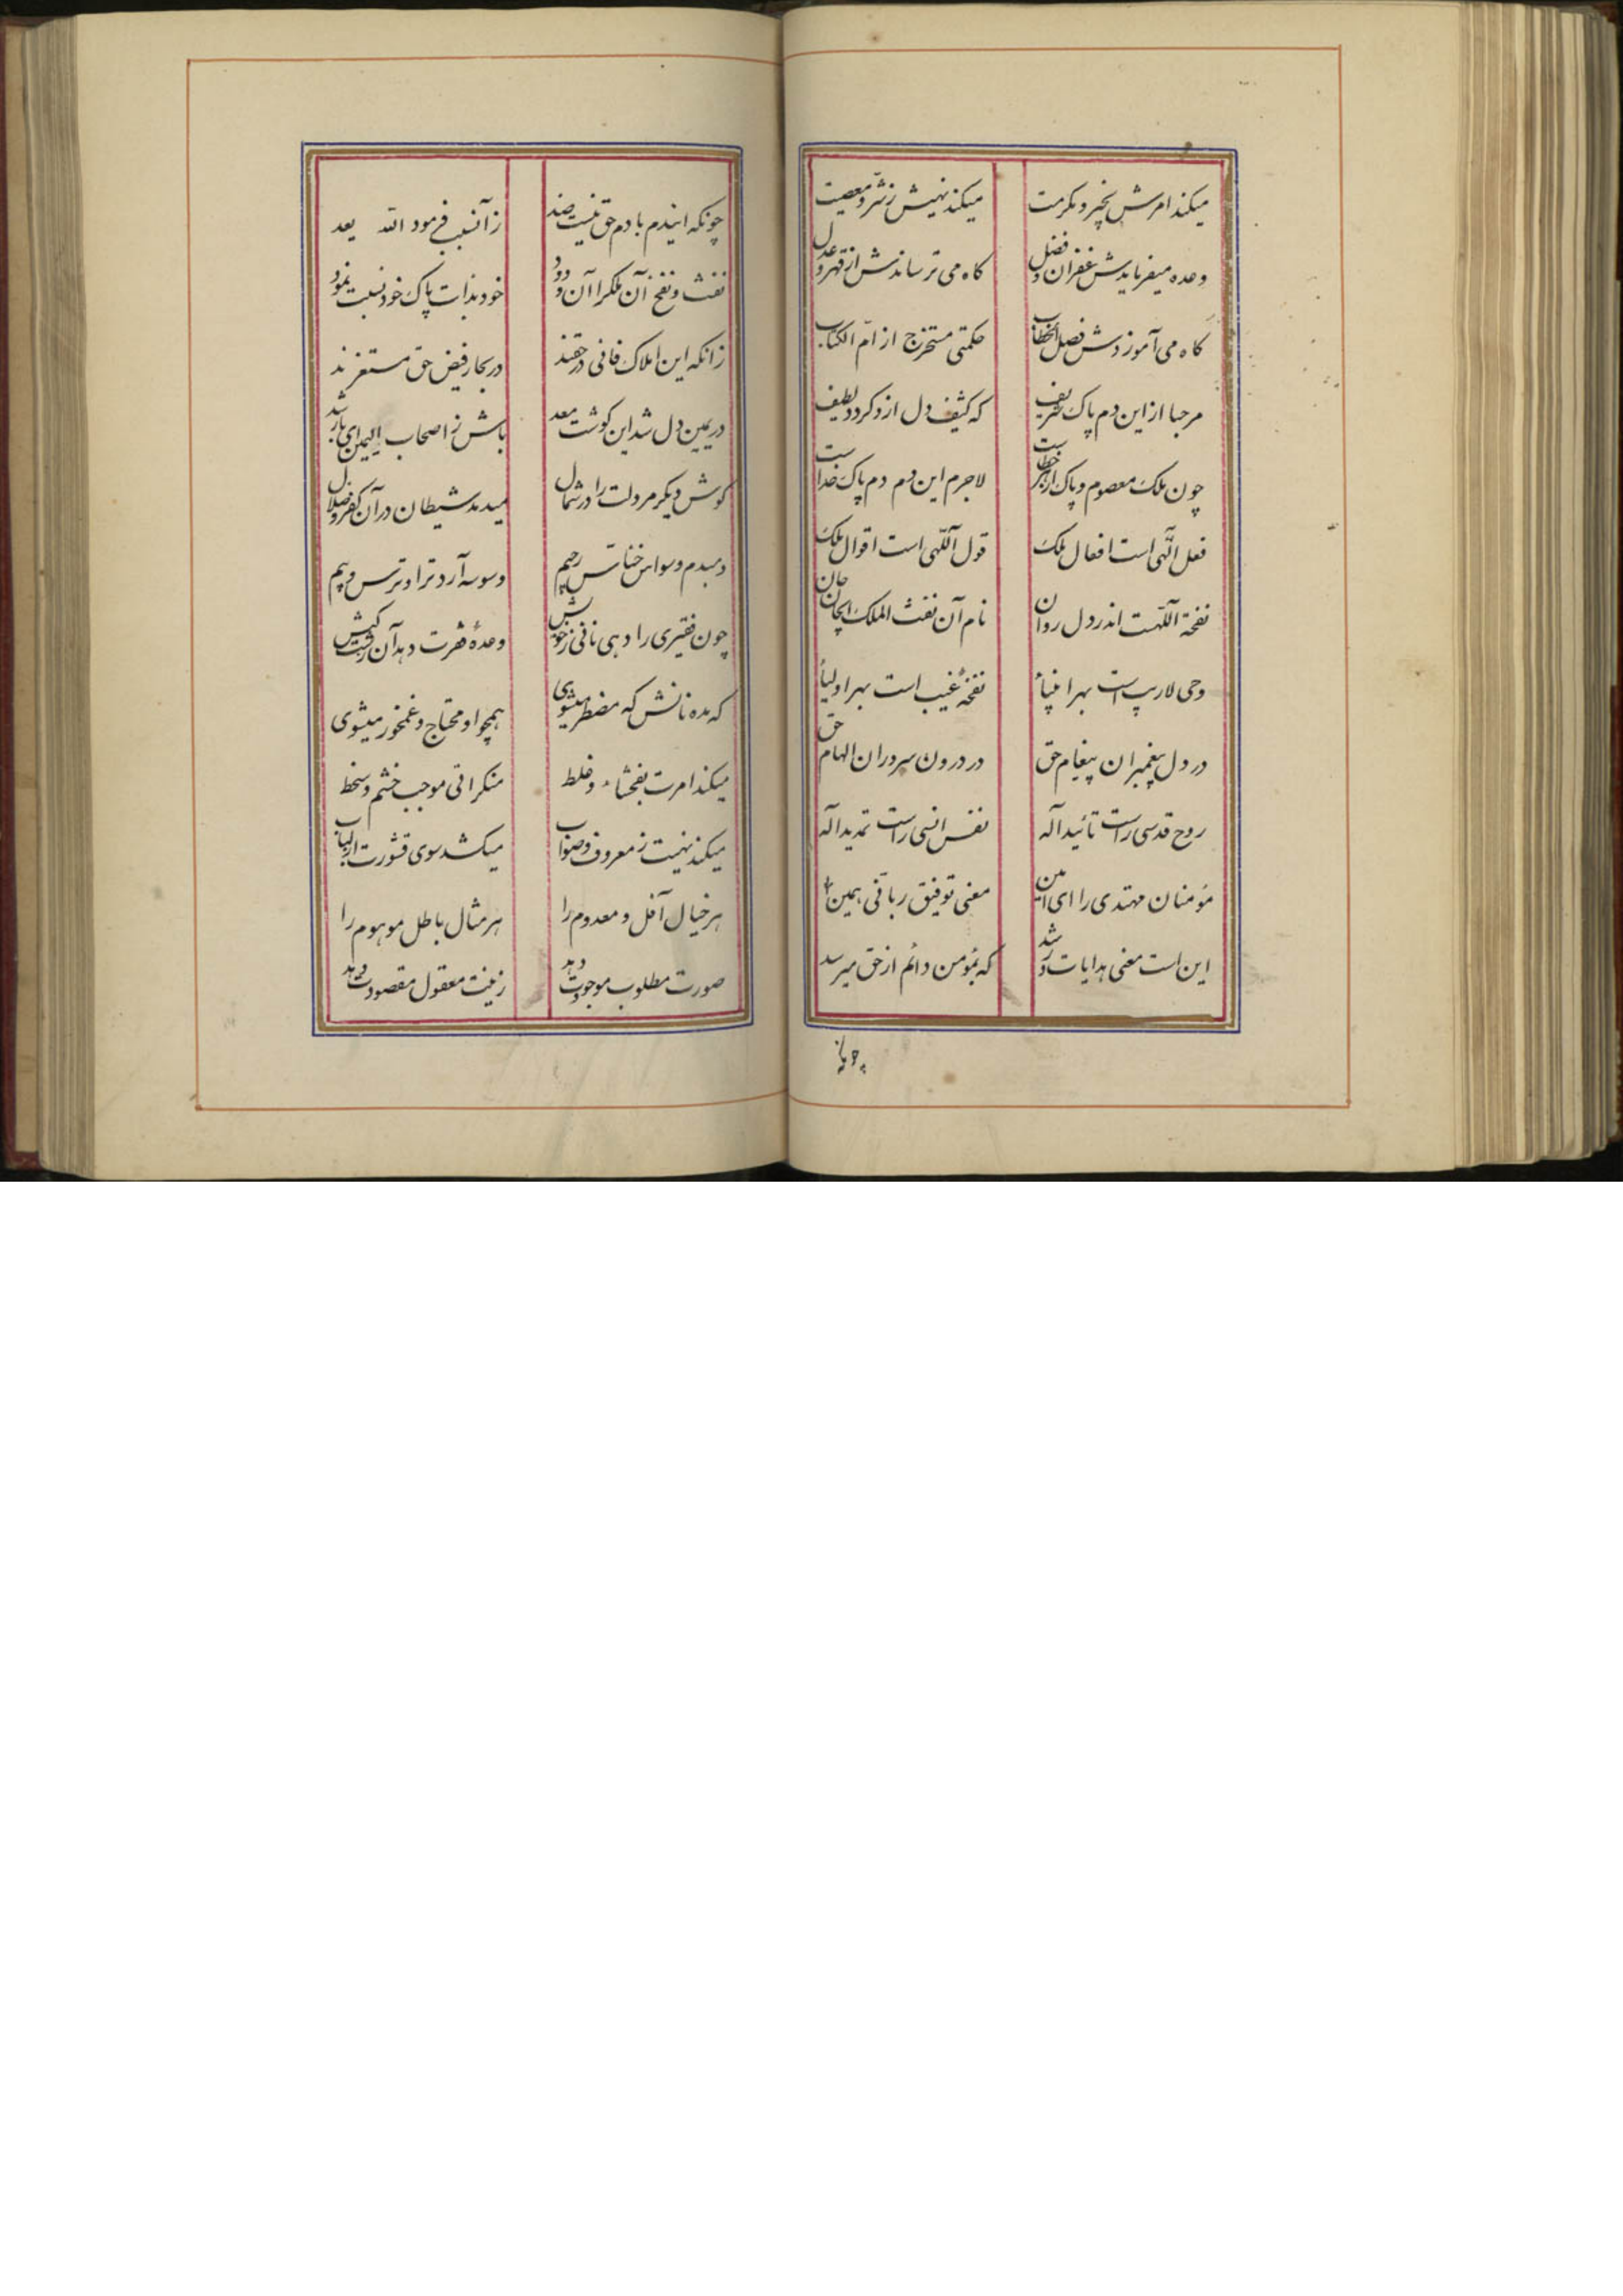 میکند امرش بخیر و مکرمت
میکند نهیش ز شر و معصیت
وعده میفرمایدش غفران و فضل
کاه می ترساندش از قهر و عدل
کاه می آموزدش فصل الخطاب
حکمتی مستخرج از ام الکتاب
مرحبا از این دم پاک شریف
که کثیف دل ازو کردد لطیف
چون ملک معصوم و پاک از هر خطاست
لاجرم این دم دم پاک خداست
فعل اللهی است افعال ملک
قول اللهی است اقوال ملک
نفخة اللهست اندر دل روان
نام آن نفث الملک ای جان جان
وحی لاریب است بهر انبیأ
نفخهٔ غیب است بهر اولیأ
در دل پیغمبران پیغام حق
در درون سروران الهام حق
روح قدسی راست تائید اله
نفس انسی راست تمدید اله
مؤمنان مهتدی را ای امین
معنی توفیق ربانی همین
این است معنی هدایات و رشد
که بمؤمن دائم از حق میرسد
چونکه
چونکه ایندم با دم حق نیست ضد
زآنسبب فرمود الله یعد
نفث و نفخ آن ملک را آن ودود
خود بذات پاک خود نسبت نمود
زانکه این املاک فانی در حقند
در بحار فیض حق مستغرقند
در یمین دل شد این کوش معد
باش ز اصحاب الیمین ای با رشد
کوش دیکر مر دلت را در شمال
میدمد شیطان در آن کفر و ضلال
دمبدم وسواس خناس رجیم
وسوسه آرد ترا و ترس و بیم
چون فقیری را دهی نانی ز خویش
وعدهٔ فقرت دهد آن کیش
که مده نانش که مضطر میشوی
همچو او محتاج و غمخور میشوی
میکند امرت بفحشاء و غلط
منکراتی موجب خشم و سخط
میکند نهیت ز معروف و صواب
میکشد سوی قشورت از لباب
هر خیال آفل و معدوم را
هر مثال باطل موهوم را
صورت مطلوب موجودت دهد
زینت معقول مقصودت دهد